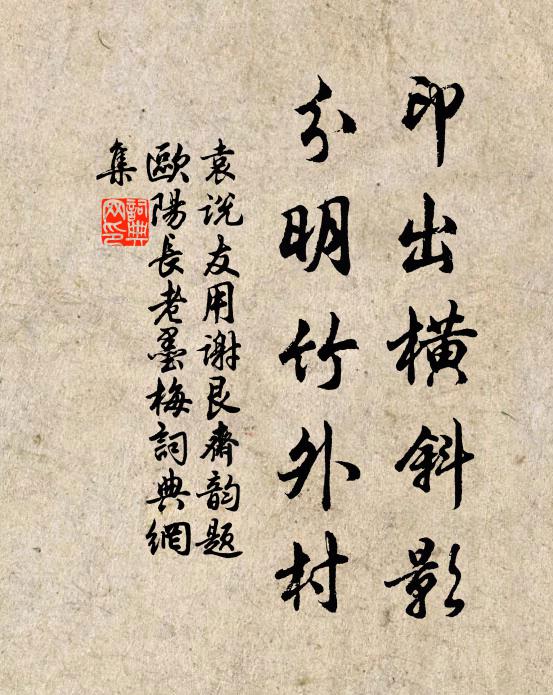 印出橫斜影
分明竹外村
袁说友用谢艮斋韵题
歐陽長老墨梅詞典網
集
詞典
网印